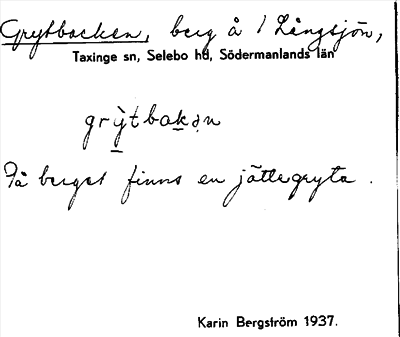 Grytbacken, berg å / Långsjön,
Taxinge sn, Selebo hd, Södermanlands län
grỳtbakən
På berget finns en jättegryta.
Karin Bergström 1937.